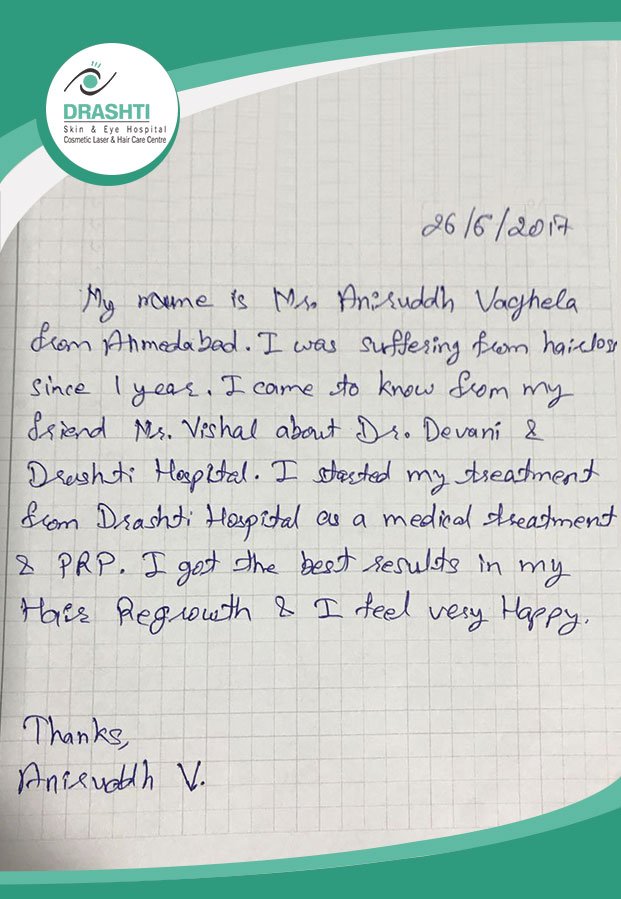 DRASHTI
Skin & Eye Hospital
Cosmetic Laser & Hair Care Centre
26/6/2017
My name is Mr. Aniruddh Vaghela
from Ahmedabad. I was suffering from hairloss
since 1 year. I came to know from my
friend Mr. Vishal about Dr. Devani &
Drashti Hospital. I started my treatment
from Drashti Hospital as a medical treatment
& PRP. I got the best results in my
Hair Regrowth & I feel very Happy.
Thanks,
Aniruddh V.